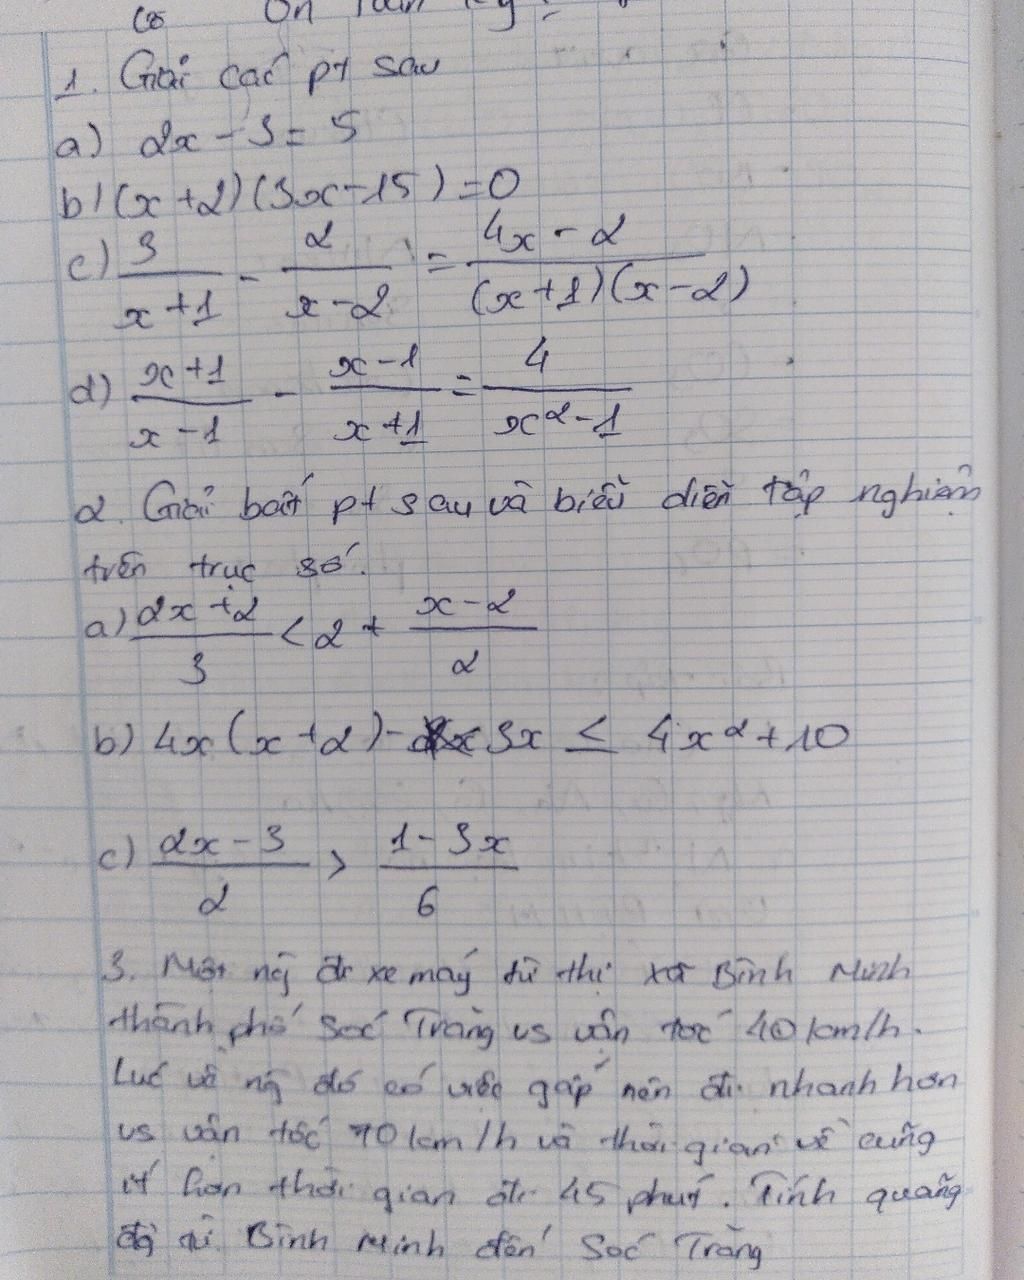 Ôn
1. Giải các pt sau
a) 2x - 3 = 5
b) (x + 2)(3x - 15) = 0
c) 3/(x + 1) - 2/(x - 2) = (4x - 2)/((x + 1)(x - 2))
d) (x + 1)/(x - 1) - (x - 1)/(x + 1) = 4/(x² - 1)
2. Giải bất pt sau và biểu diễn tập nghiệm
trên trục số.
a) (2x + 2)/3 < 2 + (x - 2)/2
b) 4x(x + 2) - 3x ≤ 4x² + 10
c) (2x - 3)/2 > (1 - 3x)/6
3. Một ng đi xe máy từ thị xã Bình Minh
thành phố Sóc Trăng vs vận tốc 40 km/h.
Lúc về ng đó có việc gấp nên đi nhanh hơn
vs vận tốc 70 km/h và thời gian về cũng
ít hơn thời gian đi 45 phút. Tính quãng
đg từ Bình Minh đến Sóc Trăng